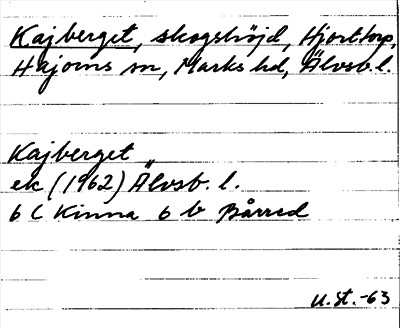 Kajberget, skogshöjd, Hjorttorp,
Hajoms sn, Marks hd, Älvsb l.
Kajberget
ek (1962) Älvsb. l.
6 C Kinna 6 b Bårred
U.St.-63